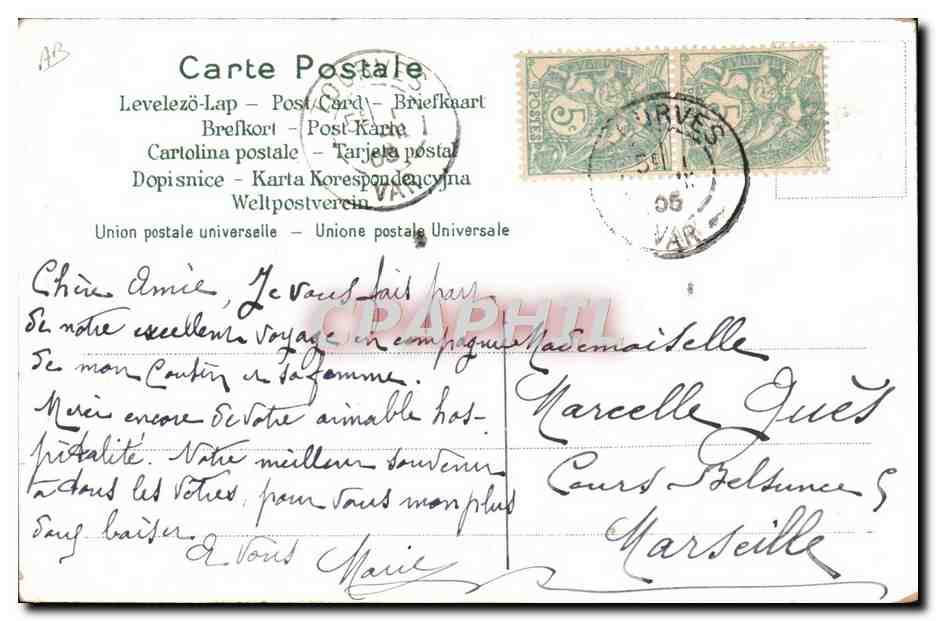 AB
Carte Postale
Levelező-Lap – Post Card – Briefkaart
Brefkort – Post Karte
Cartolina postale – Tarjeta postal
Dopisnice – Karta Korespondencyjna
Weltpostverein
Union postale universelle – Unione postale Universale
TOURVES
VAR
5c
POSTES
5c
TOURVES
05
VAR
CPAPHIL
Chère Amie, Je vous fais part
de notre excellent voyage en compagnie
de mon Cousin et sa femme.
Merci encore de votre aimable hos-
pitalité. Notre meilleur souvenir
à tous les vôtres, pour vous mon plus
doux baiser.
A vous Marie
Mademoiselle
Marcelle Guès
Cours Belsunce 5
Marseille